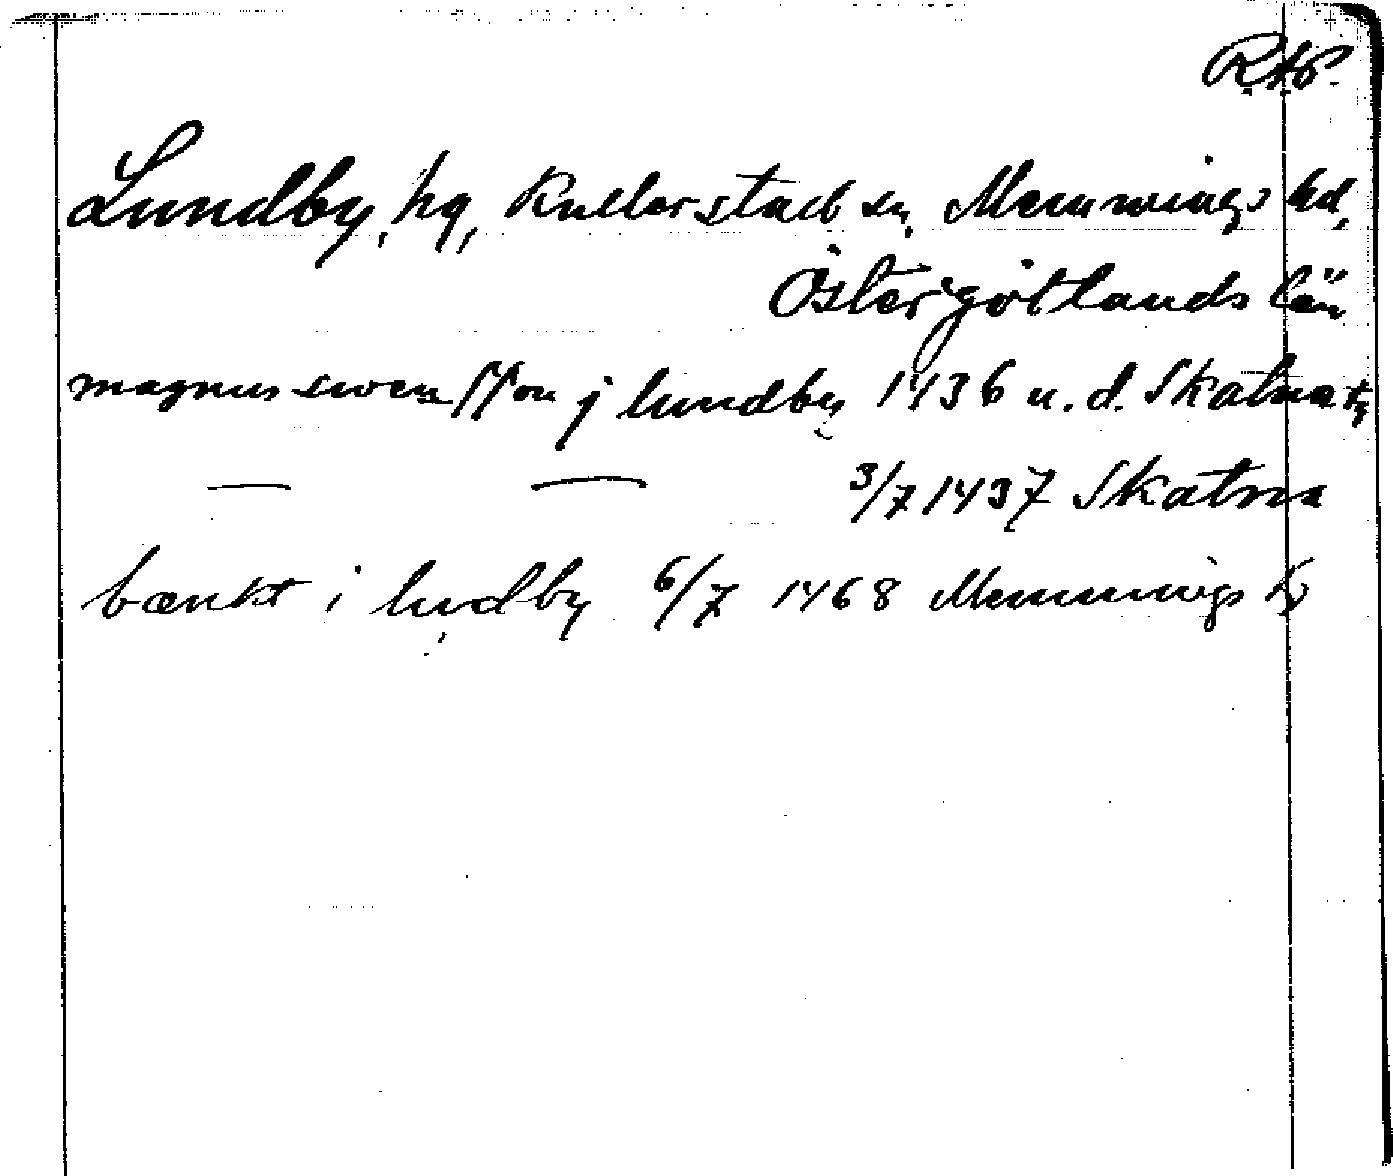 RAP.
Lundby, hg, Kullerstad sn, Memmings hd,
Östergötlands län
magnus swensson j lundby 1436 u. d. Skatna tg
— — 3/7 1437 Skatna
bænkt i lundby 6/7 1468 Memmings tg